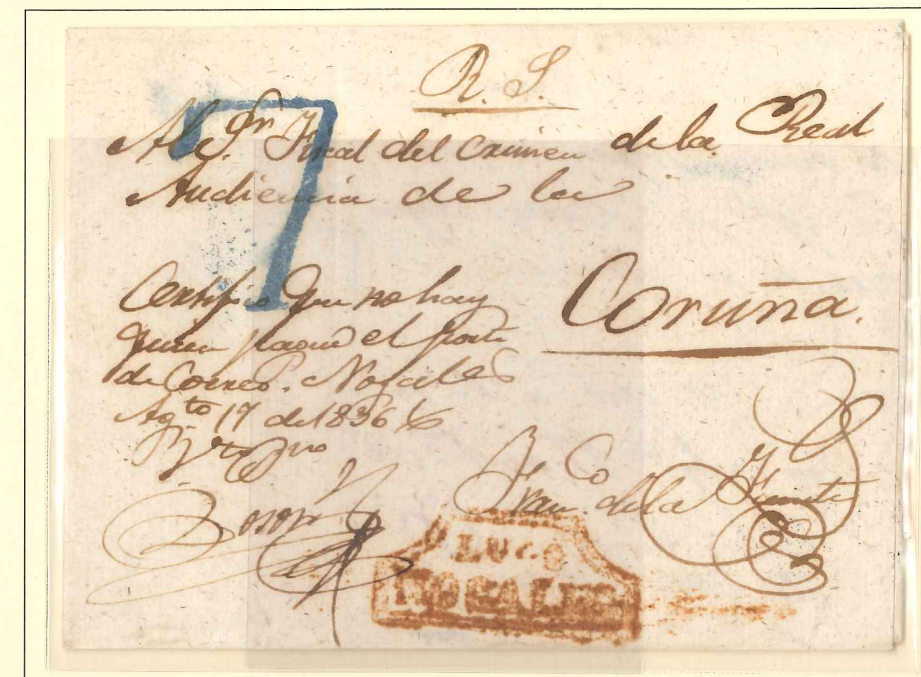 R. S.
Al Sr. Fiscal del Crimen de la Real
Audiencia de la
7
Coruña.
Certifico Que no hay
quien pague el porte
de Correo. Nogales
Agto 17 de 1836
Franco. de la Fuente
LUGO
NOGALES